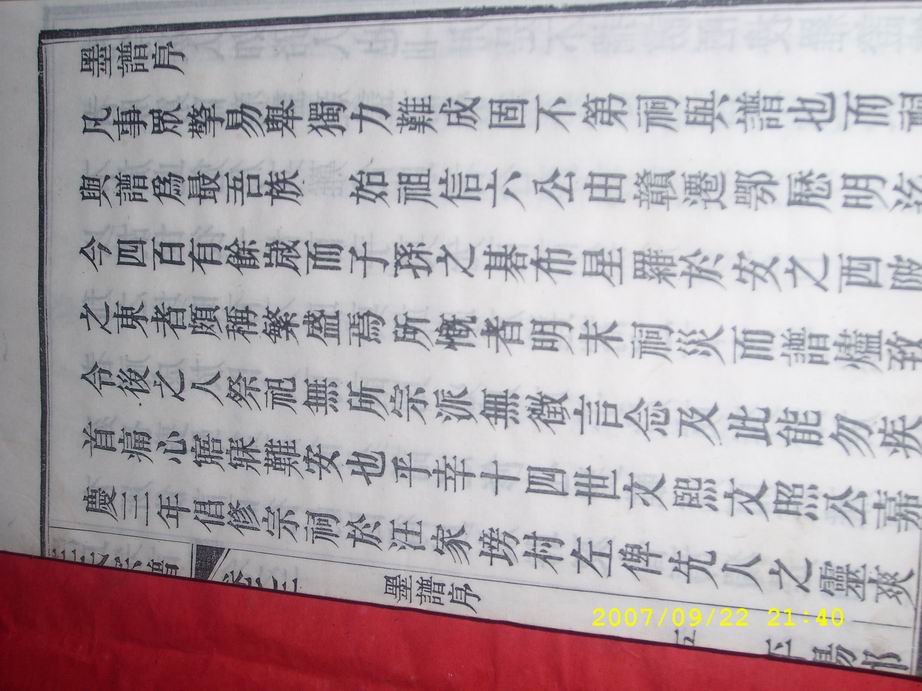 墨譜序
凡事眾擎易舉獨力難成固不第祠與譜也而祠
與譜爲最吾族 始祖信六公由贛遷鄂歷明迄
今四百有餘歲而子孫之碁布星羅於安之西陂
之東者頗稱繁盛焉所慨者明末祠災而譜燼致
令後之人祭祀無所宗派無徵言念及此能勿疾
首痛心寤寐難安也乎幸十四世文熙文照公嘉
慶三年倡修宗祠於汪家塝村左俾先人之靈爽
墨譜序
2007/09/22 21:40